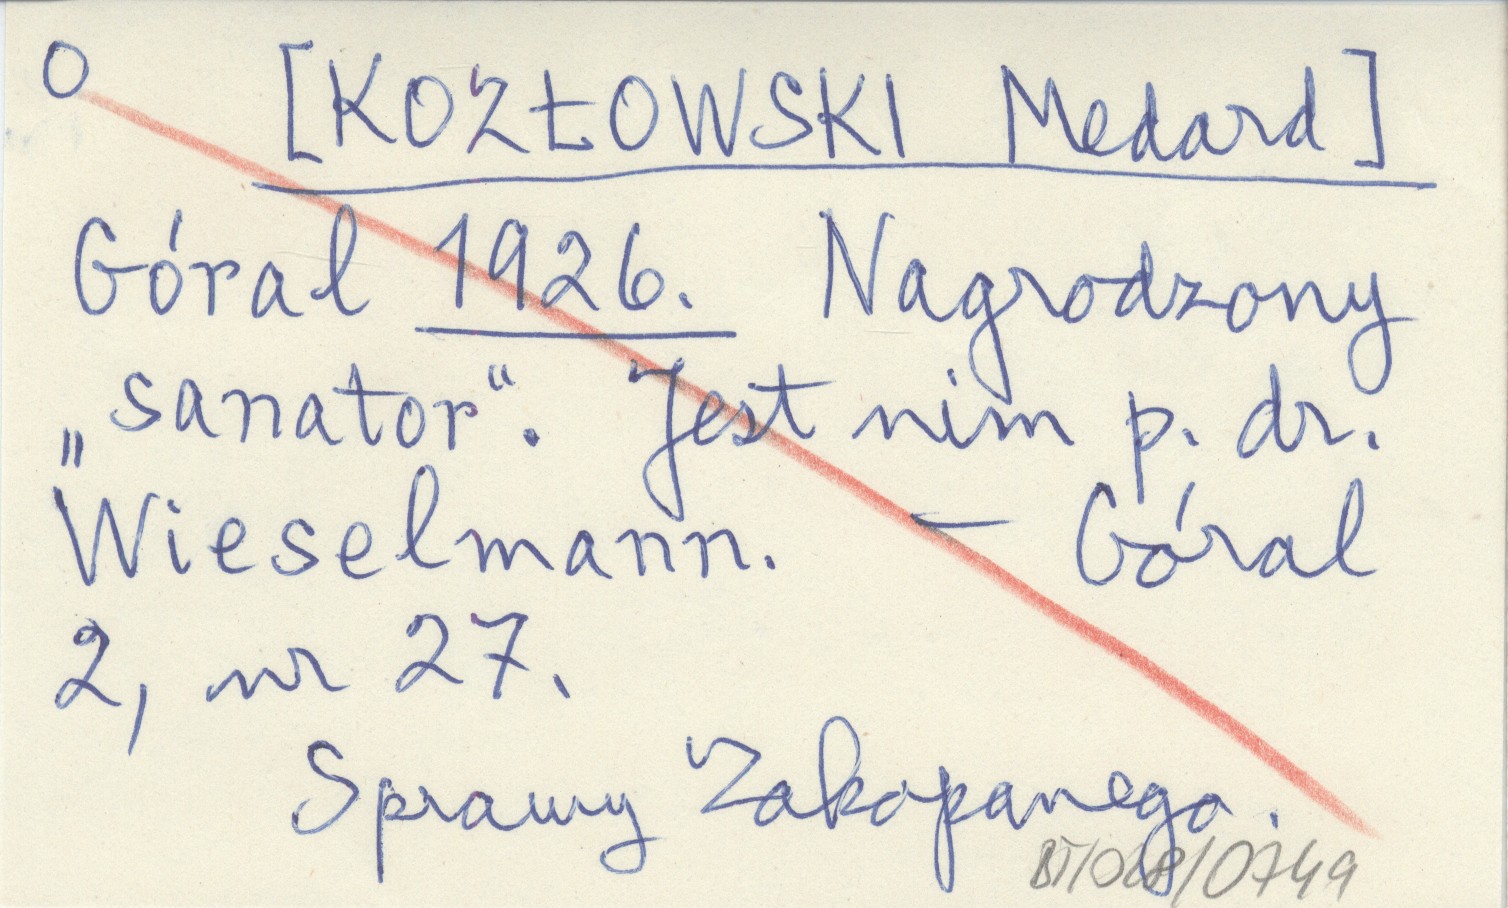 O [KOZŁOWSKI Medard]
Góral 1926. Nagrodzony
„sanator“. Jest nim p. dr.
Wieselmann. — Góral
2, nr 27.
Sprawy Zakopanego.
BT/048/0749